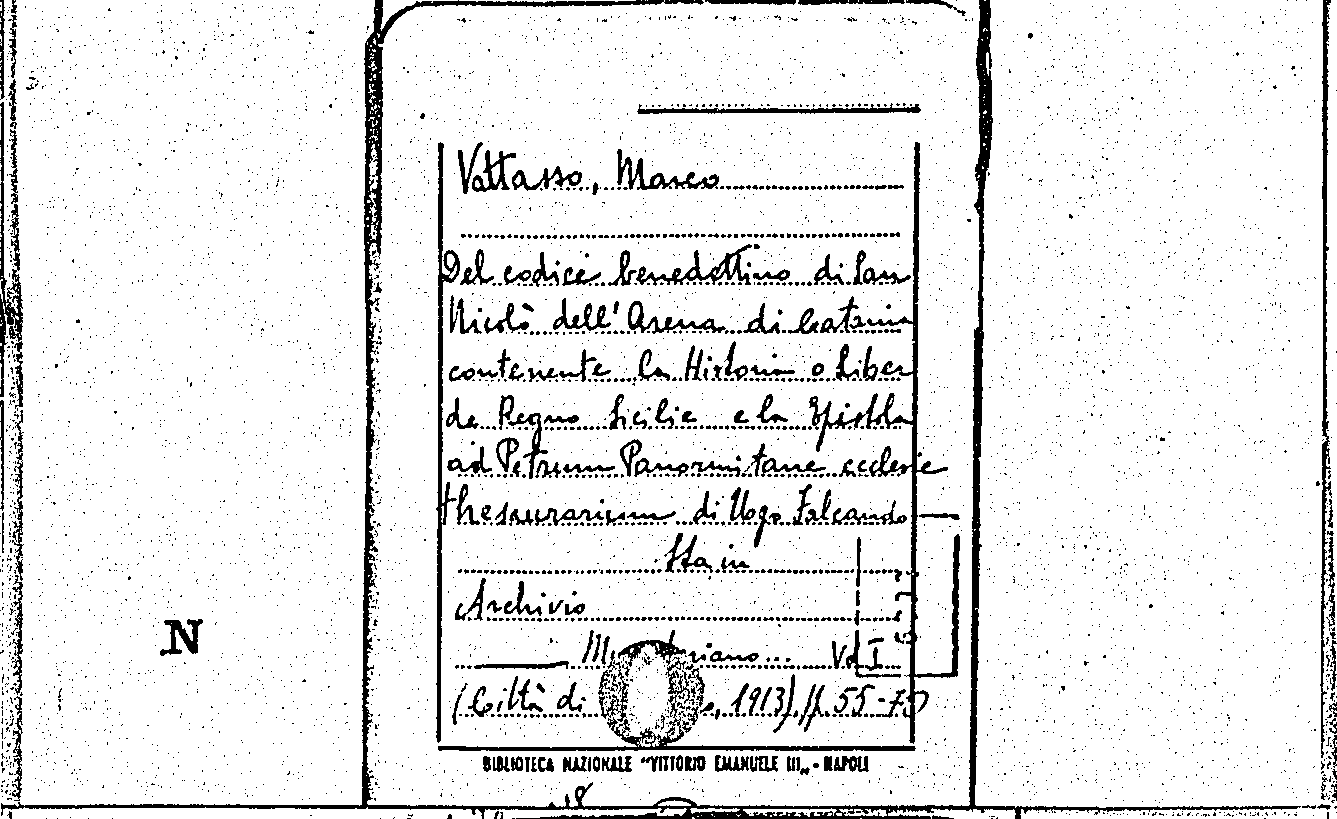 Vattasso, Marco
Del codice benedettino di San
Nicolò dell'Arena di Catania
contenente la Historia o Liber
de Regno Sicilie e la Epistola
ad Petrum Panormitane ecclesie
thesaurarium di Ugo Falcando
Sta in
Archivio
Vol I
(Città di , 1913), pp. 55-75
N
BIBLIOTECA NAZIONALE "VITTORIO EMANUELE III„ - NAPOLI